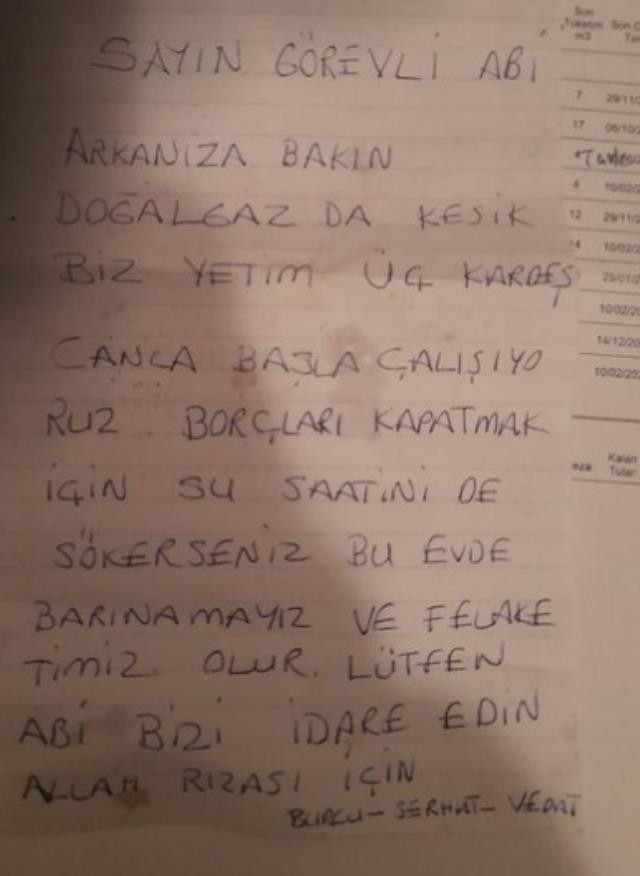 SAYIN GÖREVLİ ABİ
ARKANIZA BAKIN
DOĞALGAZ DA KESİK
BİZ YETİM ÜÇ KARDEŞ
CANLA BAŞLA ÇALIŞIYO
RUZ. BORÇLARI KAPATMAK
İÇİN SU SAATİNİ DE
SÖKERSENİZ BU EVDE
BARINAMAYIZ VE FELAKE
TİMİZ OLUR. LÜTFEN
ABİ BİZİ İDARE EDİN
ALLAH RIZASI İÇİN
BURCU - SERHAT - VEDAT
Son
Tüketim
m3
Son
7 29/11/2
17 06/10/2
4 10/02/2
12 29/11/2
14 10/02/2
29/01/2
10/02/20
14/12/20
10/02/202
eza
Kalan
Tutar